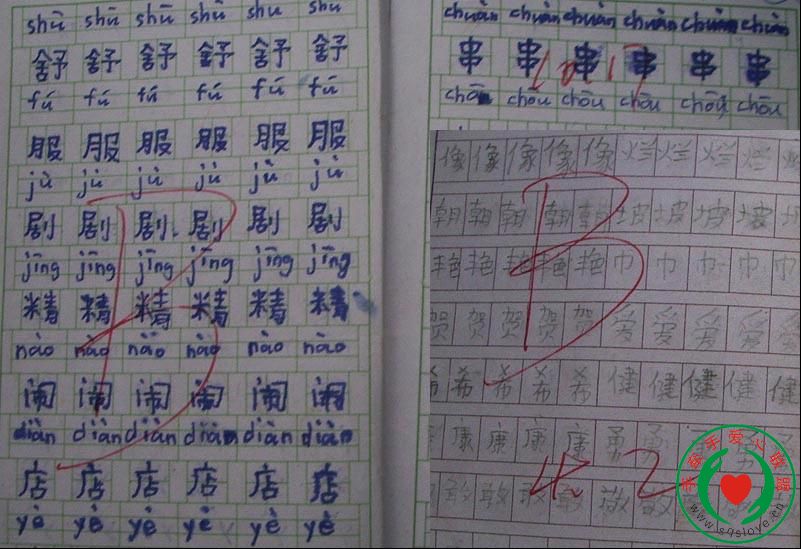 shū shū shū shū shū shū
舒 舒 舒 舒 舒 舒
fú fú fú fú fú fú
服 服 服 服 服 服
jù jù jù jù jù jù
剧 剧 剧 剧 剧 剧
jīng jīng jīng jīng jīng jīng
精 精 精 精 精 精
nào nào nào nào nào nào
闹 闹 闹 闹 闹 闹
diàn diàn diàn diàn diàn diàn
店 店 店 店 店 店
yè yè yè yè yè yè
chuàn chuàn chuàn chuàn chuàn chuàn
串 串 串 串 串 串
chōu chōu chōu chōu chōu chōu
像 像 像 像 像 烂 烂 烂 烂
朝 朝 朝 朝 朝 坡 坡 坡 坡
艳 艳 艳 艳 艳 巾 巾 巾 巾
贺 贺 贺 贺 贺 爱 爱 爱 爱
希 希 希 希 希 健 健 健 健
康 康 康 康 勇 勇
敢 敢 敢 敢 敢 敢
B
B
www.sqsloye.cn